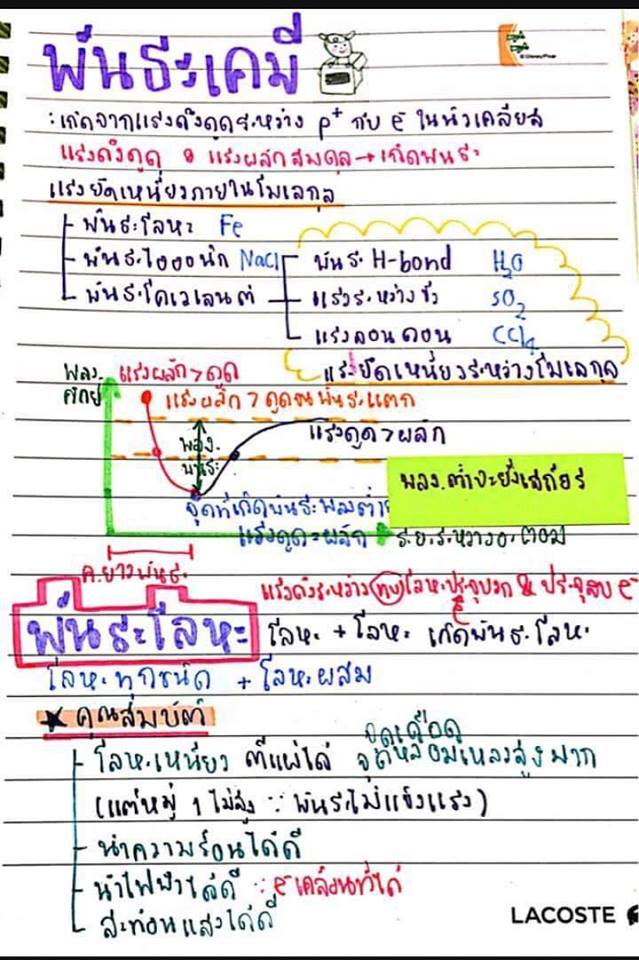 พันธะเคมี
: เกิดจากแรงดึงดูดระหว่าง p+ กับ e- ในนิวเคลียส
แรงดึงดูด & แรงผลักสมดุล → เกิดพันธะ
แรงยึดเหนี่ยวภายในโมเลกุล
พันธะโลหะ Fe
พันธะไอออนิก NaCl
พันธะโคเวเลนต์
พันธะ H-bond H2O
แรงระหว่างขั้ว SO2
แรงลอนดอน CCl4
แรงยึดเหนี่ยวระหว่างโมเลกุล
พลง. ศักย์
แรงผลัก > ดูด
แรงผลัก > ดูดจนพันธะแตก
แรงดูด > ผลัก
พลง. พันธะ
จุดที่เกิดพันธะพลงต่ำ
แรงดูด = ผลัก
พลง.ต่ำจะยิ่งเสถียร
ระยะระหว่างอะตอม
ค.ยาวพันธะ
แรงดึงระหว่าง โลหะประจุบวก & ประจุลบ e-
พันธะโลหะ
โลหะ + โลหะ เกิดพันธะโลหะ
โลหะทุกชนิด + โลหะผสม
★ คุณสมบัติ
โลหะเหนียว ตีแผ่ได้ จุดเดือด จุดหลอมเหลวสูงมาก
(แต่หมู่ 1 ไม่สูง ∵ พันธะไม่แข็งแรง)
นำความร้อนได้ดี
นำไฟฟ้าได้ดี ∵ e- เคลื่อนที่ได้
สะท้อนแสงได้ดี
LACOSTE